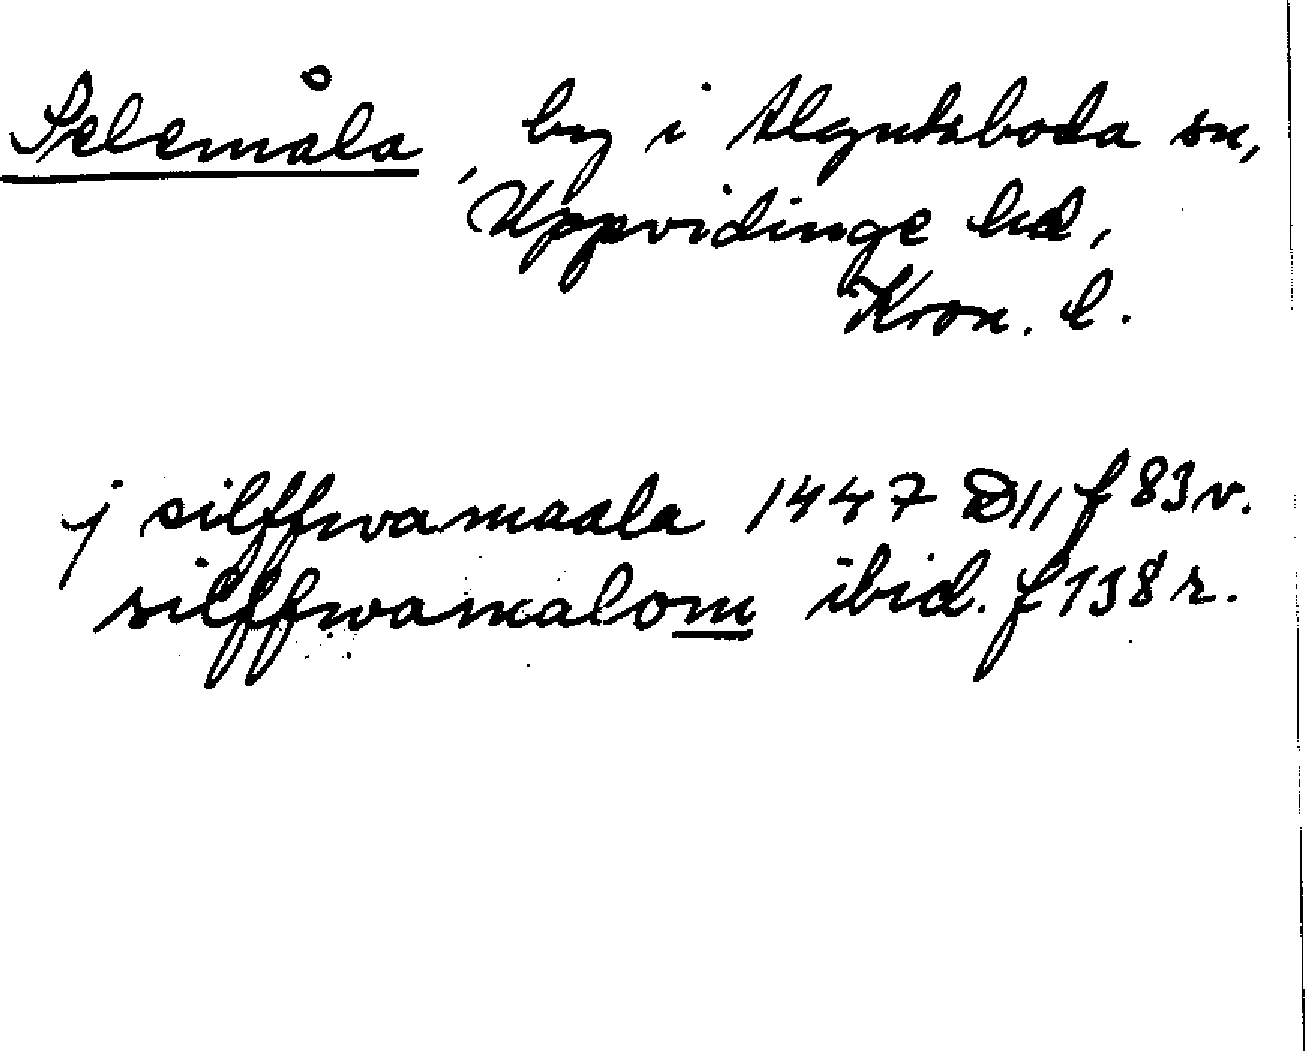 Selemåla, by i Algutsboda sn,
Uppvidinge hd,
Kron. l.
j silffwamaala 1447 D11 f 83 v.
silffwamalom ibid. f 138 r.